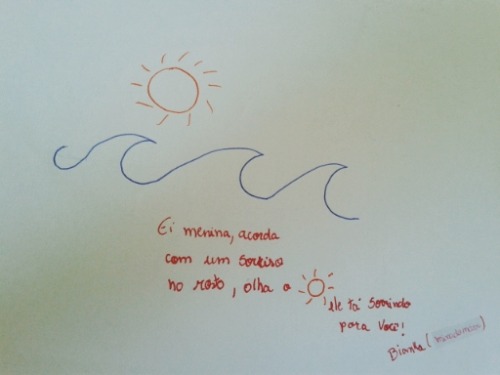 Ei menina, acorda
com um sorriso
no rosto, olha o
ele tá sorrindo
para você!